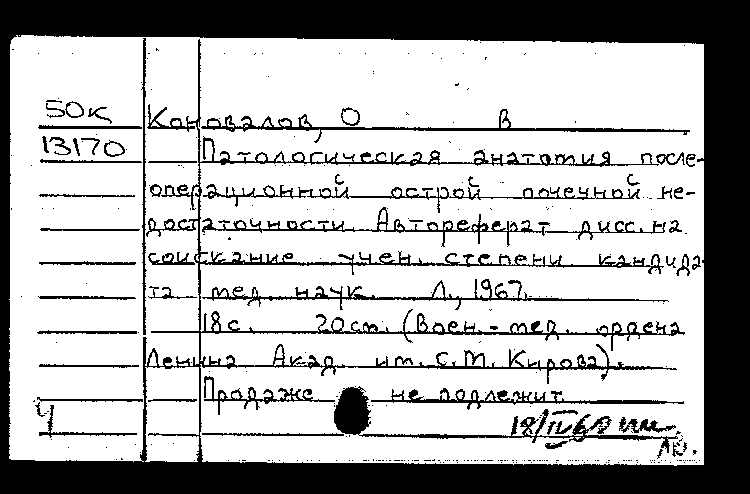 50к Коновалов, О В
13170 Патологическая анатомия после-
операционной острой почечной не-
достаточности. Автореферат дисс. на
соискание учен. степени кандида-
та мед. наук. Л., 1967.
18 с. 20 см. (Воен.-мед. ордена
Ленина Акад. им. С.М. Кирова).
Продаже не подлежит
Ч